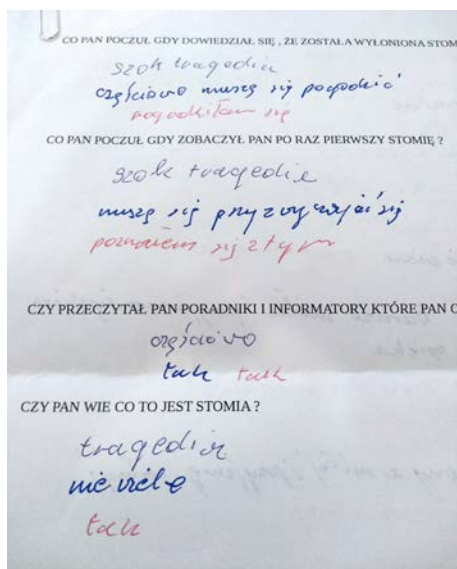 CO PAN POCZUŁ GDY DOWIEDZIAŁ SIĘ , ŻE ZOSTAŁA WYŁONIONA STOM
szok tragedia
częściowo muszę się pogodzić
pogodziłam się
CO PAN POCZUŁ GDY ZOBACZYŁ PAN PO RAZ PIERWSZY STOMIĘ ?
szok tragedia
muszę się
się z tym
CZY PRZECZYTAŁ PAN PORADNIKI I INFORMATORY KTÓRE PAN O
częściowo
tak tak
CZY PAN WIE CO TO JEST STOMIA ?
tragedia
nie wiele
tak